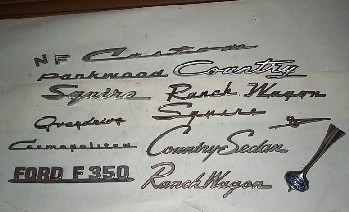 NF Custom
Parkwood Country
Squire Ranch Wagon
Overdrive Squire
Cosmopolitan Country Sedan
FORD F 350 Ranch Wagon